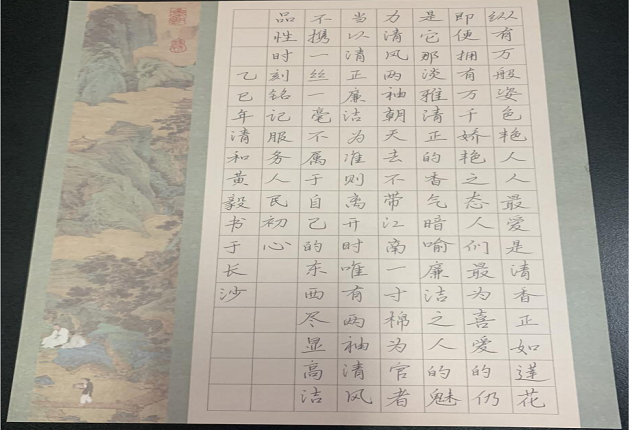 纵有万般姿色艳人人最爱是清香正如蓮花
即便拥有万千娇艳之态人们最为喜爱的仍
是它那淡雅清正的香气暗喻廉洁之人的魅
力清风两袖朝天去不带江南一寸棉为官者
当以清正廉洁为准则离开时唯有两袖清风
不携一丝一毫不属于自己的东西尽显高洁
品性时刻铭记服务人民初心
乙巳年清和黄毅书于长沙